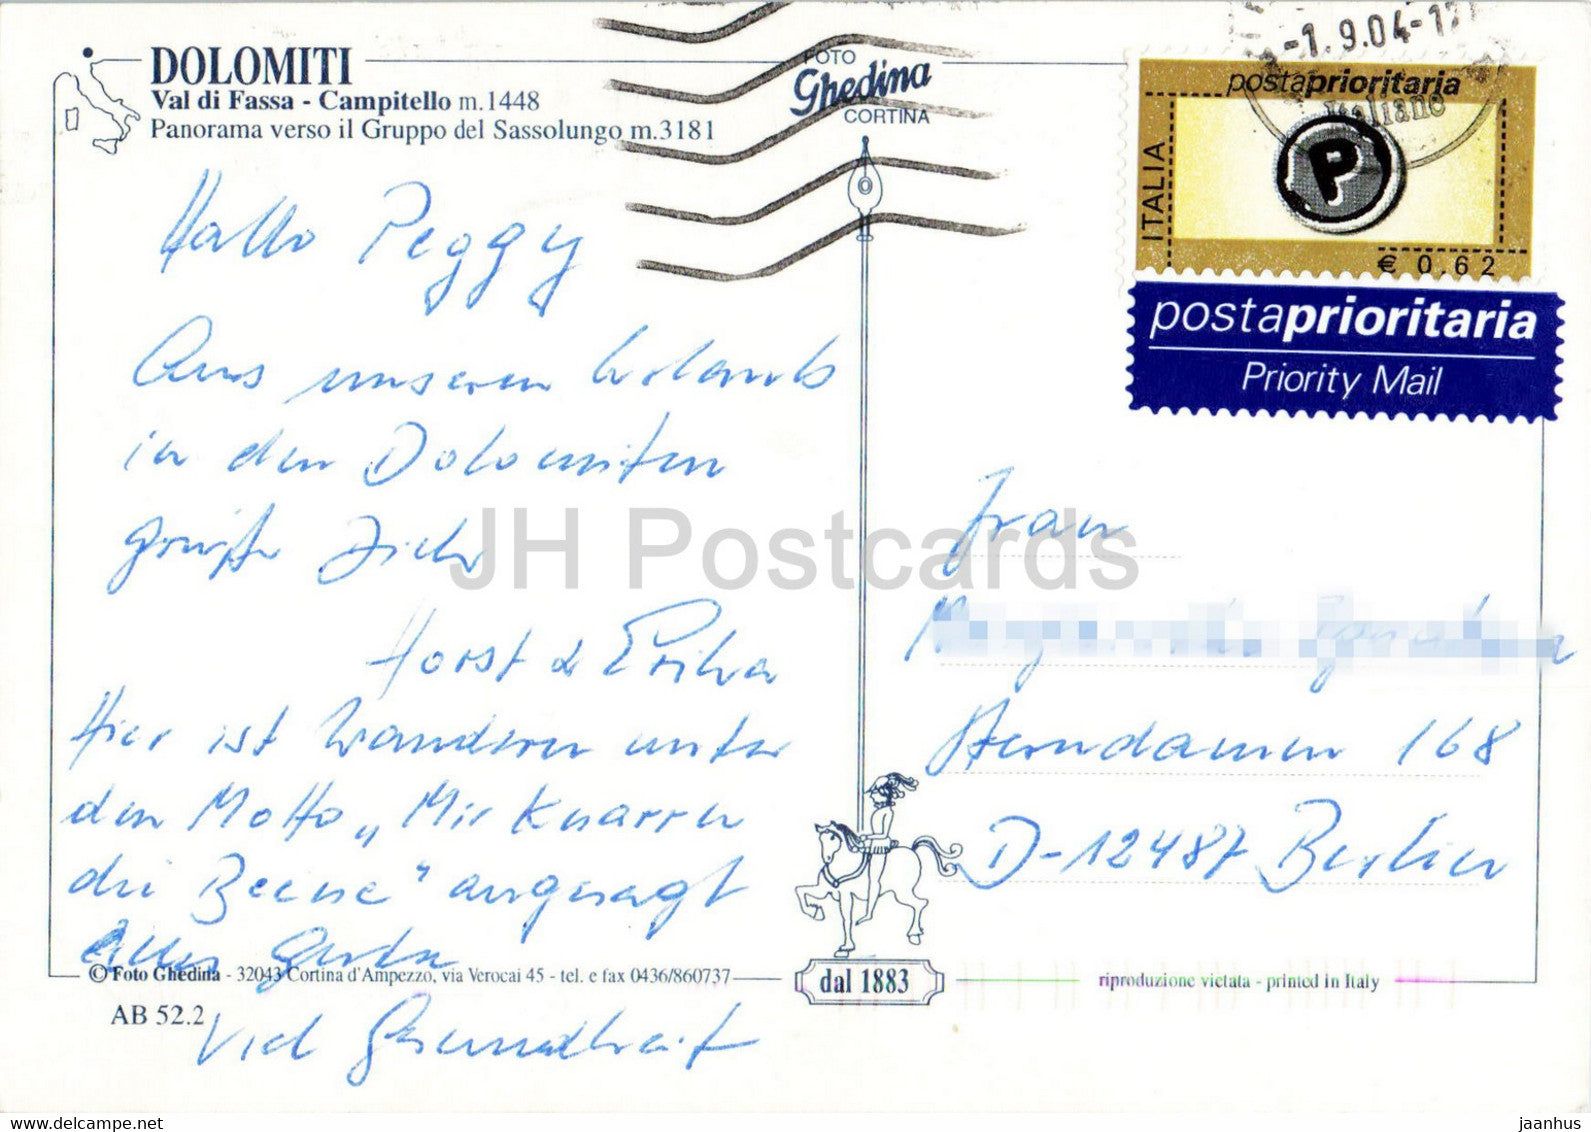 DOLOMITI
Val di Fassa - Campitello m.1448
Panorama verso il Gruppo del Sassolungo m.3181
FOTO
Ghedina
CORTINA
-1.9.04-1
Italiane
postaprioritaria
ITALIA
P
€ 0.62
postaprioritaria
Priority Mail
Hallo Peggy
Aus unseren Urlaub
in den Dolomiten
grüßen Dich
Horst & Erika
Hier ist Wandern unter
den Motto „Mir Knarren
die Beene" angesagt
Alles Gute
Viel Gesundheit
Frau
168
D-12487 Berlin
© Foto Ghedina - 32043 Cortina d'Ampezzo, via Verocai 45 - tel. e fax 0436/860737
dal 1883
riproduzione vietata - printed in Italy
AB 52.2
JH Postcards
hipdelcampe.net
jaanhus